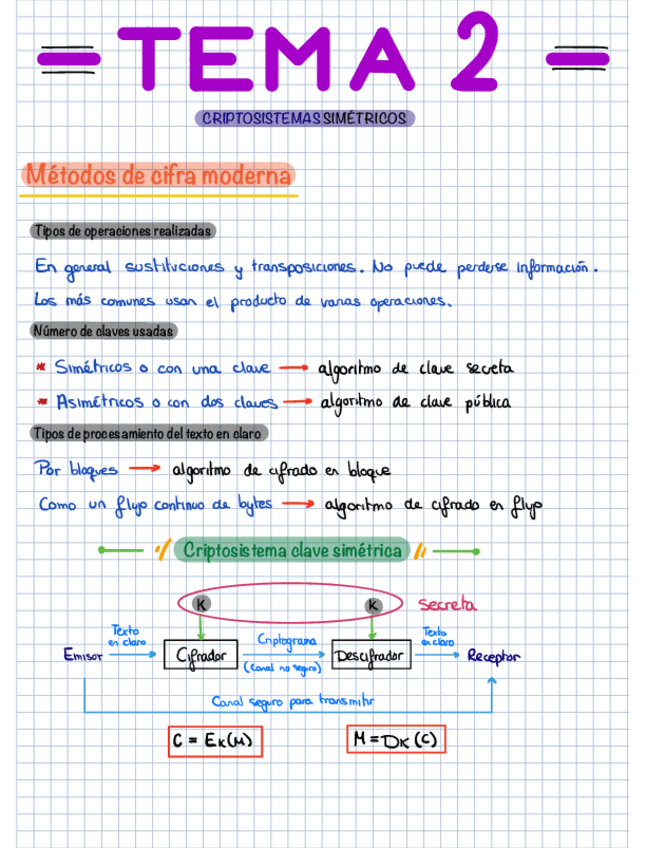 TEMA 2
CRIPTOSISTEMAS SIMÉTRICOS
Métodos de cifra moderna
Tipos de operaciones realizadas
En general sustituciones y transposiciones. No puede perderse información.
Los más comunes usan el producto de varias operaciones.
Número de claves usadas
* Simétricos o con una clave → algoritmo de clave secreta
* Asimétricos o con dos claves → algoritmo de clave pública
Tipos de procesamiento del texto en claro
Por bloques → algoritmo de cifrado en bloque
Como un flujo continuo de bytes → algoritmo de cifrado en flujo
Criptosistema clave simétrica
K K secreta
Emisor Texto en claro Cifrador Criptograma (Canal no seguro) Descifrador Texto en claro Receptor
Canal seguro para transmitir
C = EK(M) M = DK(C)